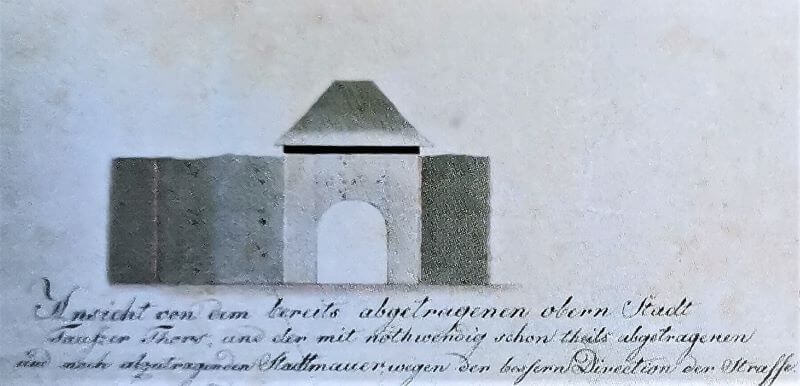 Ansicht von dem bereits abgetragenen obern Stadt
Taufzer Thors, und der mit nothwendig schon theils abgetragenen
und noch abzutragenden Stadtmauer, wegen der bessern Direction der Strasse